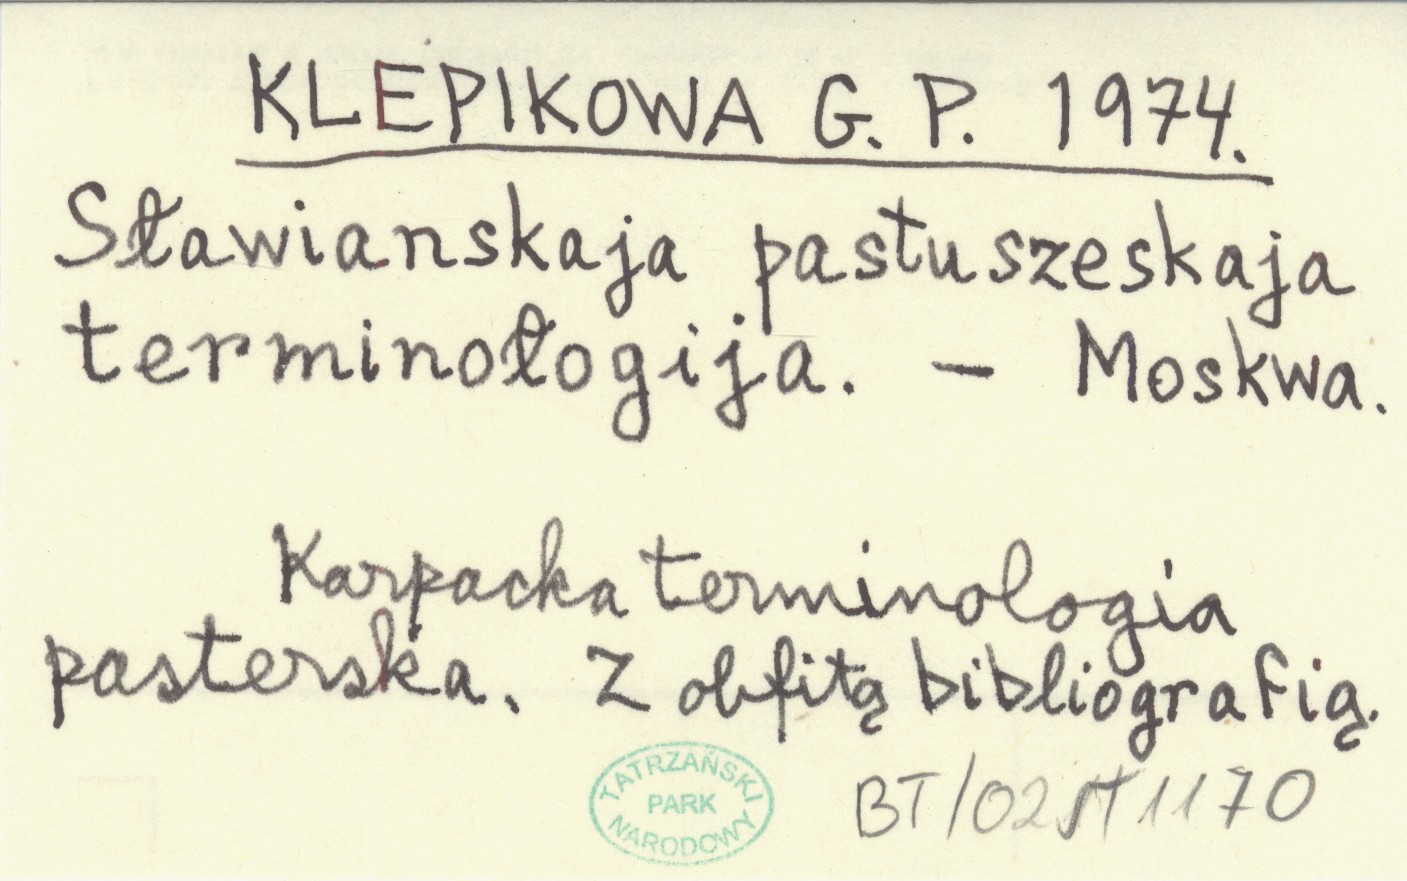 KLEPIKOWA G. P. 1974.
Sławianskaja pastuszeskaja
terminołogija. – Moskwa.
Karpacka terminologia
pasterska. Z obfitą bibliografią.
TATRZAŃSKI
PARK
NARODOWY
BT/02 1170